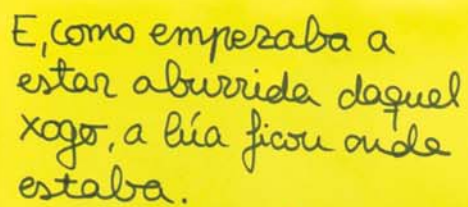 E, como empezaba a
estar aburrida daquel
xogo, a lúa ficou onde
estaba.